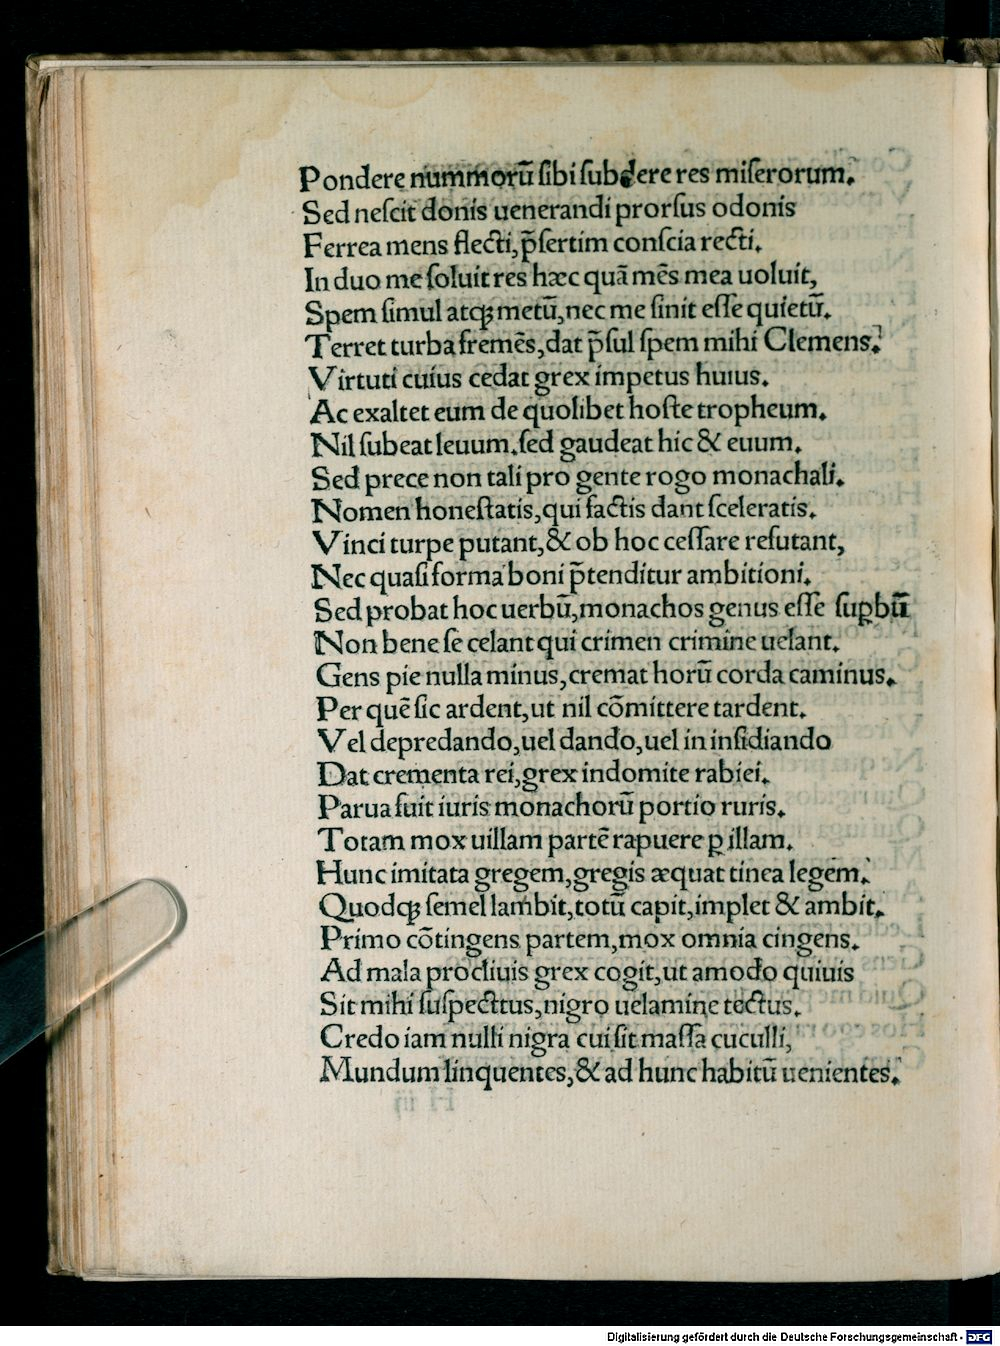 Pondere nummorū ſibi ſubdere res miſerorum.
Sed neſcit donis uenerandi prorſus odonis
Ferrea mens flecti,p̄ſertim conſcia recti.
In duo me ſoluit res hæc quā mēs mea uoluit,
Spem ſimul atqꝫ metū,nec me ſinit eſſe quietū.
Terret turba fremēs,dat p̄ſul ſpem mihi Clemens.
Virtuti cuius cedat grex impetus huius.
Ac exaltet eum de quolibet hoſte tropheum.
Nil ſubeat leuum.ſed gaudeat hic & euum.
Sed prece non tali pro gente rogo monachali.
Nomen honeſtatis,qui factis dant ſceleratis.
Vinci turpe putant,& ob hoc ceſſare refutant,
Nec quaſi forma boni p̄tenditur ambitioni.
Sed probat hoc uerbū,monachos genus eſſe ſuꝑbū
Non bene ſe celant qui crimen crimine uelant.
Gens pie nulla minus,cremat horū corda caminus.
Per quē ſic ardent,ut nil cōmittere tardent.
Vel depredando,uel dando,uel in inſidiando
Dat crementa rei,grex indomite rabiei.
Parua fuit iuris monachorū portio ruris.
Totam mox uillam partē rapuere ꝑ illam.
Hunc imitata gregem,gregis æquat tinea legem.
Quodqꝫ ſemel lambit,totū capit,implet & ambit.
Primo cōtingens partem,mox omnia cingens.
Ad mala procliuis grex cogit,ut amodo quiuis
Sit mihi ſuſpecttus,nigro uelamine tectus.
Credo iam nulli nigra cui ſit maſſa cuculli,
Mundum linquentes,& ad hunc habitū uenientes.
Digitalisierung gefördert durch die Deutsche Forschungsgemeinschaft - DFG